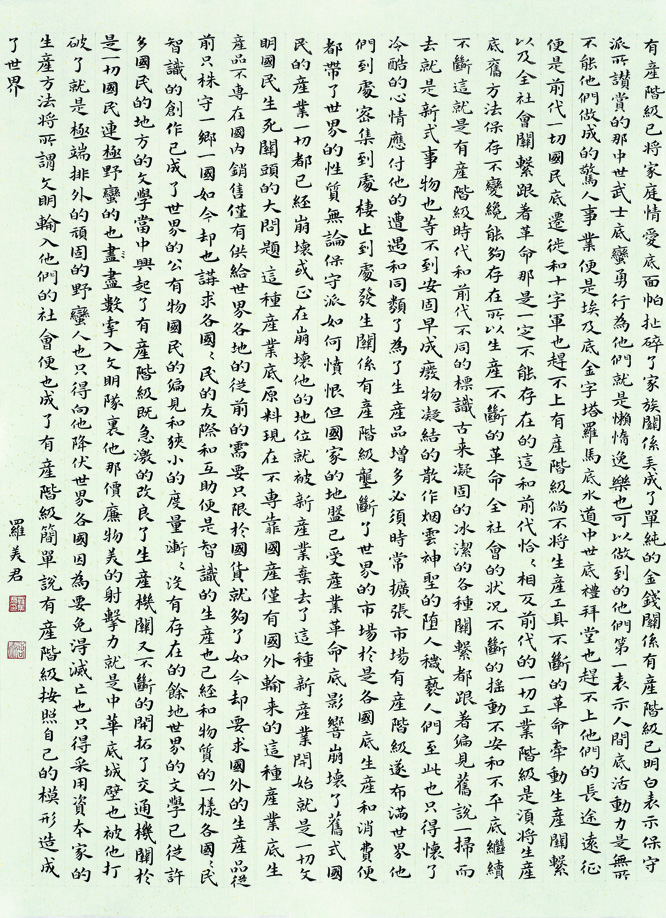 有產階級已將家庭情愛底面怕扯碎了家族關係弄成了單純的金錢關係有產階級已明白表示保守
派所讚賞的那中世武士底蠻勇行為他們就是懶惰逸樂也可以做到的他們第一表示人間底活動力是無所
不能他們做成的驚人事業便是埃及底金字塔羅馬底水道中世底禮拜堂也趕不上他們的長途遠征
便是前代一切國民底遷徙和十字軍也趕不上有產階級倘不將生產工具不斷的革命牽動生產關繫
以及全社會關繫跟着革命那是一定不能存在的這和前代恰〻相反前代的一切工業階級是須將生產
底舊方法保存不變纔能夠存在所以生產不斷的革命全社會的狀况不斷的搖動不安和不平底繼續
不斷這就是有產階級時代和前代不同的標識古来凝固的冰潔的各種關繫都跟着偏見舊說一掃而
去就是新式事物也等不到安固早成廢物凝結的散作烟雲神聖的堕人穢褻人們至此也只得懷了
冷酷的心情應付他的遭遇和同類了為了生産品增多必須時常擴張市場有産階級遂布滿世界他
們到處密集到處棲止到處發生關係有産階級壟斷了世界的市場於是各國底生産和消費便
都帶了世界的性質無論保守派如何憤恨但國家的地盤已受産業革命底影響崩壞了舊式國
民的産業一切都已經崩壞或正在崩壞他的地位就被新産業棄去了這種新産業開始就是一切文
明國民生死關頭的大問題這種産業底原料現在不專靠國産僅有國外輸来的這種産業底生
産品不專在國內銷售僅有供給世界各地的從前的需要只限於國貨就夠了如今却要求國外的生産品從
前只株守一鄉一國如今却也講求各國〻民的友際和互助便是智識的生産也已經和物質的一樣各國〻民
智識的創作已成了世界的公有物國民的偏見和狹小的度量漸〻沒有存在的餘地世界的文學已從許
多國民的地方的文學當中興起了有産階級既急激的改良了生産機關又不斷的開拓了交通機關於
是一切國民連極野蠻的也盡〻數拏入文明隊裏他那價廉物美的射擊力就是中華底城壁也被他打
破了就是極端排外的頑固的野蠻人也只得向他降伏世界各國因為要免得滅亡也只得采用資本家的
生産方法將所謂文明輸入他們的社會便也成了有産階級簡單說有産階級按照自己的模形造成
了世界
羅美君